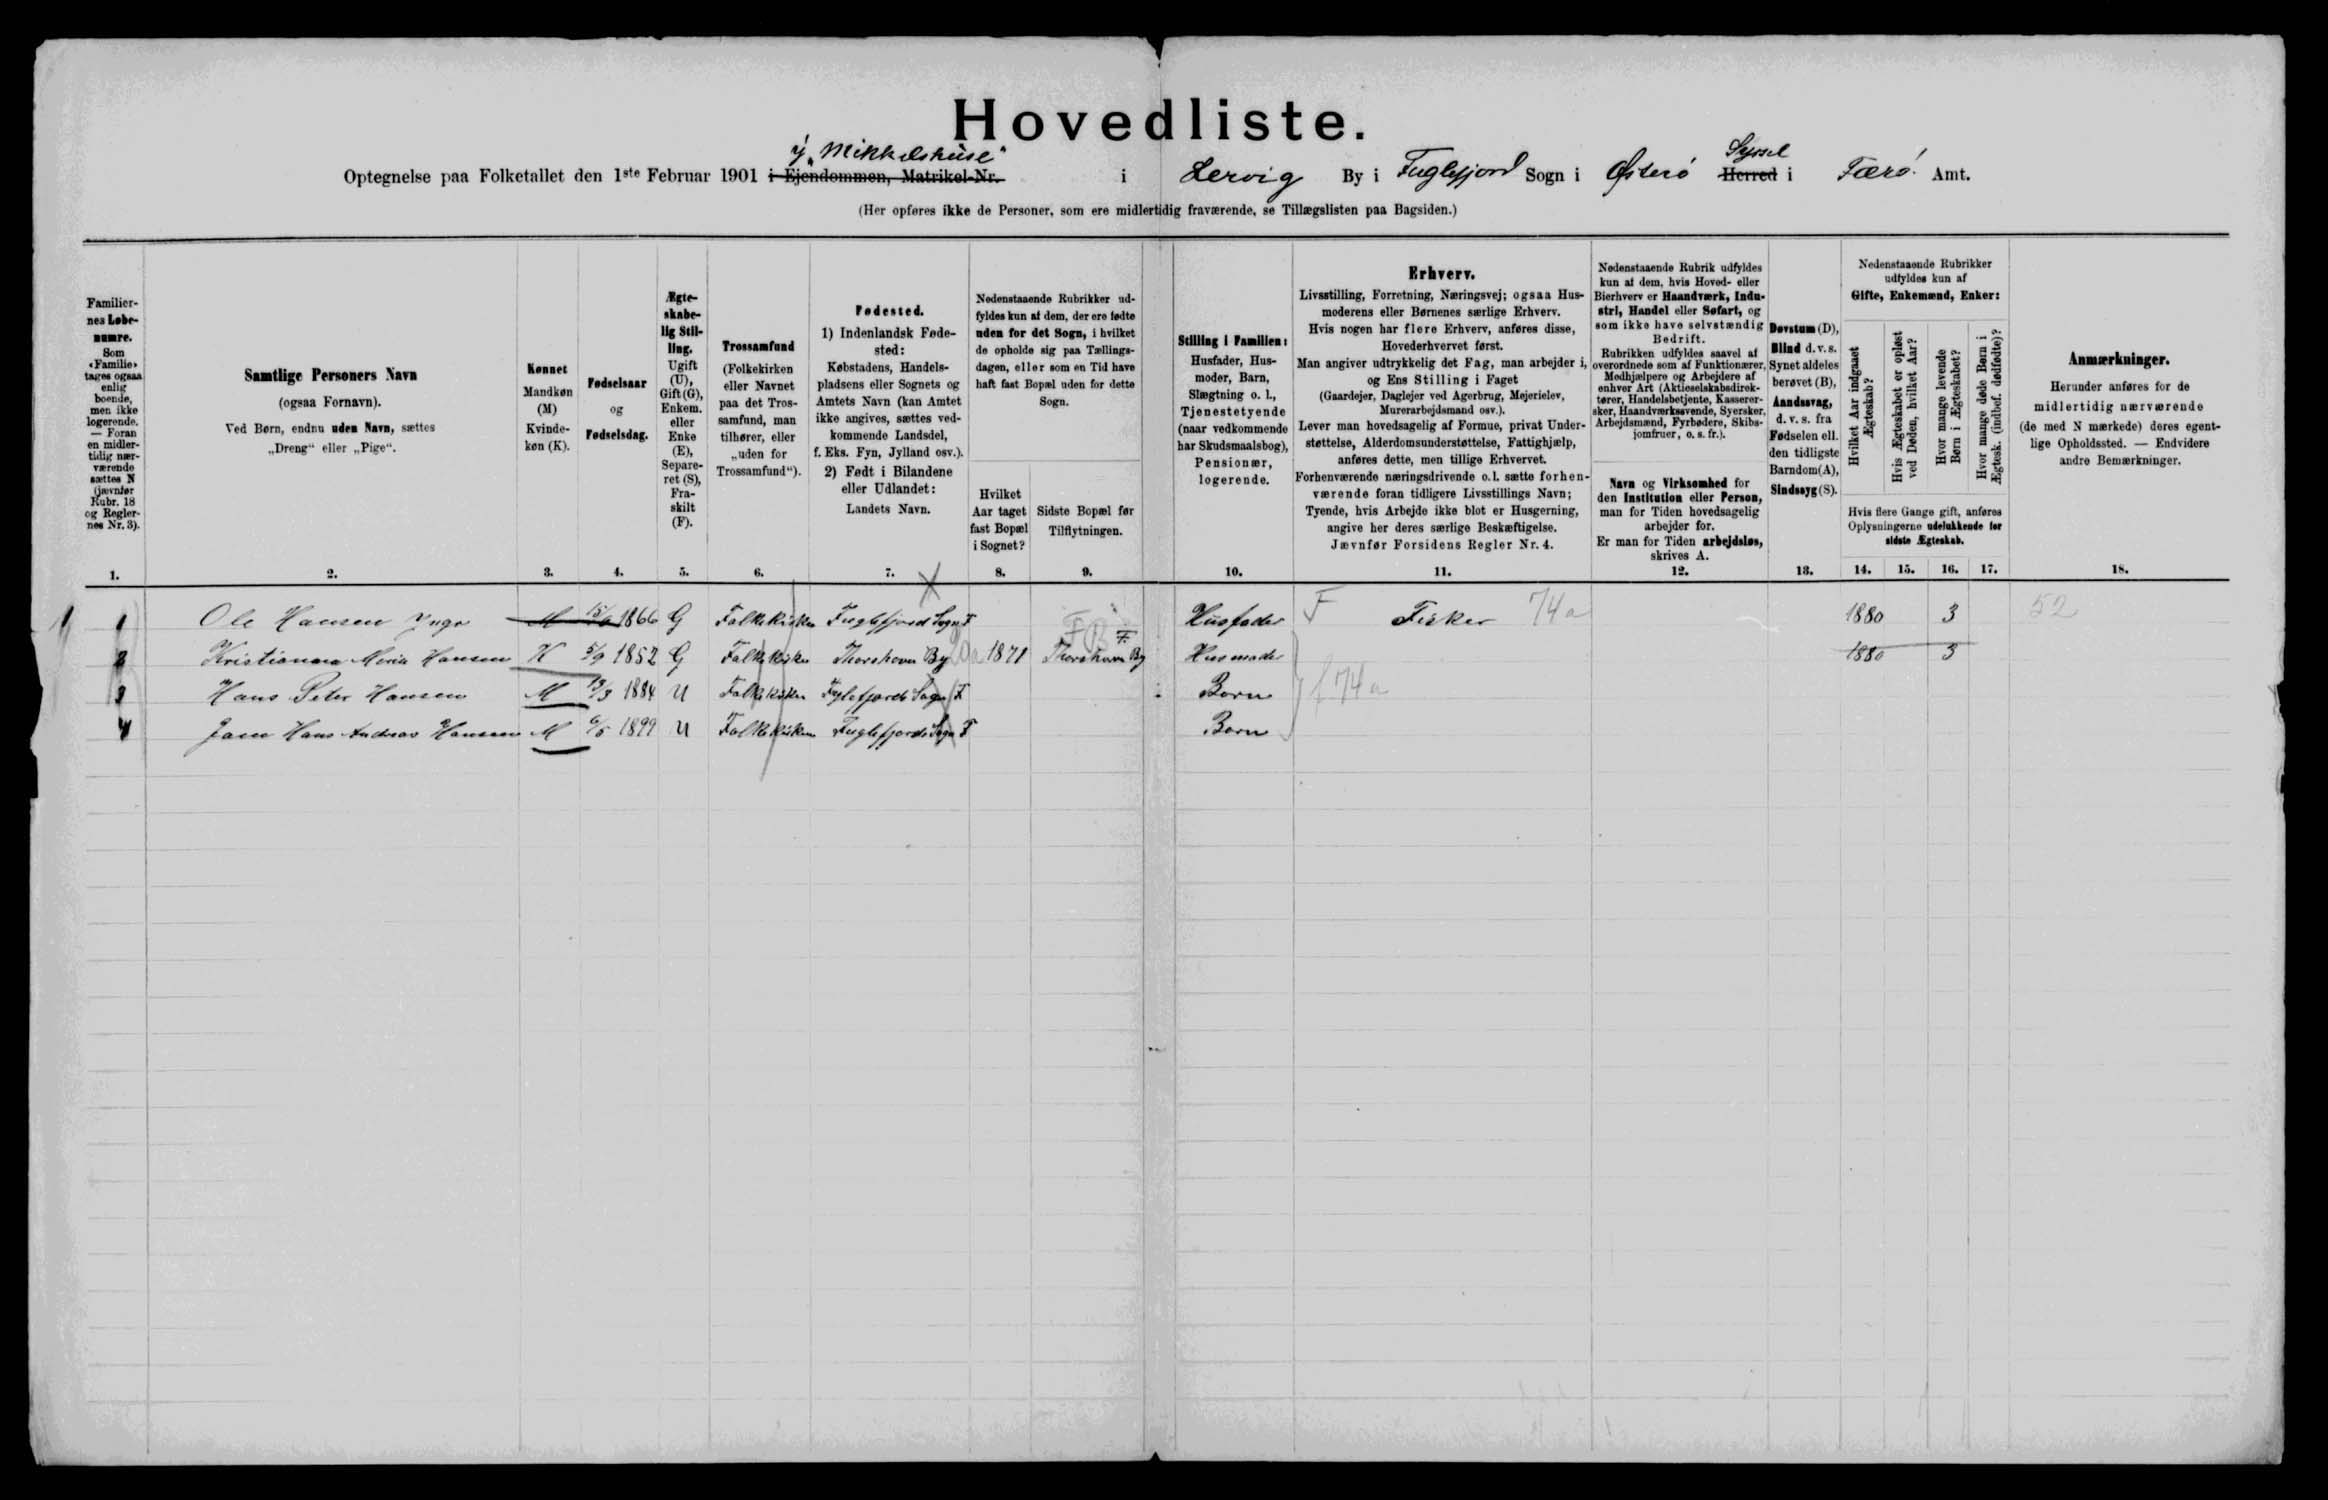 Hovedliste.
Optegnelse paa Folketallet den 1ste Februar 1901 i Ejendommen, Matrikel-Nr. i „Mikkelshúse“ i Lervig By i Fuglefjord Sogn i Østerö Herred Syssel i Færö Amt.
(Her opføres ikke de Personer, som ere midlertidig fraværende, se Tillægslisten paa Bagsiden.)
Familiernes Løbenumre.
Som «Familie» tages ogsaa enlig boende, men ikke logerende. — Foran en midlertidig nærværende sættes N (jævnfør Rubr. 18 og Reglernes Nr. 3).
1.
Samtlige Personers Navn
(ogsaa Fornavn).
Ved Børn, endnu uden Navn, sættes
„Dreng“ eller „Pige“.
2.
Kønnet
Mandkøn (M)
Kvindekøn (K).
3.
Fødselsaar
og
Fødselsdag.
4.
Ægteskabelig Stilling.
Ugift (U), Gift (G), Enkem. eller Enke (E), Separeret (S), Fraskilt (F).
5.
Trossamfund
(Folkekirken eller Navnet paa det Trossamfund, man tilhører, eller „uden for Trossamfund“).
6.
Fødested.
1) Indenlandsk Fødested:
Købstadens, Handelspladsens eller Sognets og Amtets Navn (kan Amtet ikke angives, sættes vedkommende Landsdel, f. Eks. Fyn, Jylland osv.).
2) Født i Bilandene eller Udlandet:
Landets Navn.
7.
Nedenstaaende Rubrikker udfyldes kun af dem, der ere fødte uden for det Sogn, i hvilket de opholde sig paa Tællingsdagen, eller som en Tid have haft fast Bopæl uden for dette Sogn.
Hvilket Aar taget fast Bopæl i Sognet?
8.
Sidste Bopæl før Tilflytningen.
9.
Stilling i Familien:
Husfader, Husmoder, Barn, Slægtning o. l., Tjenestetyende (naar vedkommende har Skudsmaalsbog), Pensionær, logerende.
10.
Erhverv.
Livsstilling, Forretning, Næringsvej; ogsaa Husmoderens eller Børnenes særlige Erhverv.
Hvis nogen har flere Erhverv, anføres disse, Hovederhvervet først.
Man angiver udtrykkelig det Fag, man arbejder i, og Ens Stilling i Faget
(Gaardejer, Daglejer ved Agerbrug, Mejerielev, Murerarbejdsmand osv.).
Lever man hovedsagelig af Formue, privat Understøttelse, Alderdomsunderstøttelse, Fattighjælp, anføres dette, men tillige Erhvervet.
Forhenværende næringsdrivende o. l. sætte forhenværende foran tidligere Livsstillings Navn;
Tyende, hvis Arbejde ikke blot er Husgerning, angive her deres særlige Beskæftigelse.
Jævnfør Forsidens Regler Nr. 4.
11.
Nedenstaaende Rubrik udfyldes kun af dem, hvis Hoved- eller Bierhverv er Haandværk, Industri, Handel eller Søfart, og som ikke have selvstændig Bedrift.
Rubrikken udfyldes saavel af overordnede som af Funktionærer, Medhjælpere og Arbejdere af enhver Art (Aktieselskabsdirektører, Handelsbetjente, Kasserersker, Haandværkssvende, Syersker, Arbejdsmænd, Fyrbødere, Skibsjomfruer, o. s. fr.).
Navn og Virksomhed for den Institution eller Person, man for Tiden hovedsagelig arbejder for.
Er man for Tiden arbejdsløs, skrives A.
12.
Døvstum (D), Blind d. v. s. Synet aldeles berøvet (B), Aandssvag, d. v. s. fra Fødselen ell. den tidligste Barndom (A), Sindssyg (S).
13.
Nedenstaaende Rubrikker udfyldes kun af
Gifte, Enkemænd, Enker:
Hvilket Aar indgaaet Ægteskab?
Hvis Ægteskabet er opløst ved Døden, hvilket Aar?
Hvor mange levende Børn i Ægteskabet?
Hvor mange døde Børn i Ægtesk. (indbef. dødfødte)?
Hvis flere Gange gift, anføres Oplysningerne udelukkende for sidste Ægteskab.
14. 15. 16. 17.
Anmærkninger.
Herunder anføres for de midlertidig nærværende (de med N mærkede) deres egentlige Opholdssted. — Endvidere andre Bemærkninger.
18.
1 1 Ole Hansen M 1866 G Folkekirken Fuglefjord Sogn F Husfader F Fisker 74a 1880 3 52
2 Kristianna Maria Hansen K 5/9 1852 G Folkekirken Thorshavn By 1871 Thorshavn By F Husmoder 1880 3
3 Hans Peter Hansen M 13/3 1884 U Folkekirken Fuglefjords Sogn F Barn f 74a
4 Hans Andreas Hansen M 6/5 1899 U Folkekirken Fuglefjords Sogn F Barn